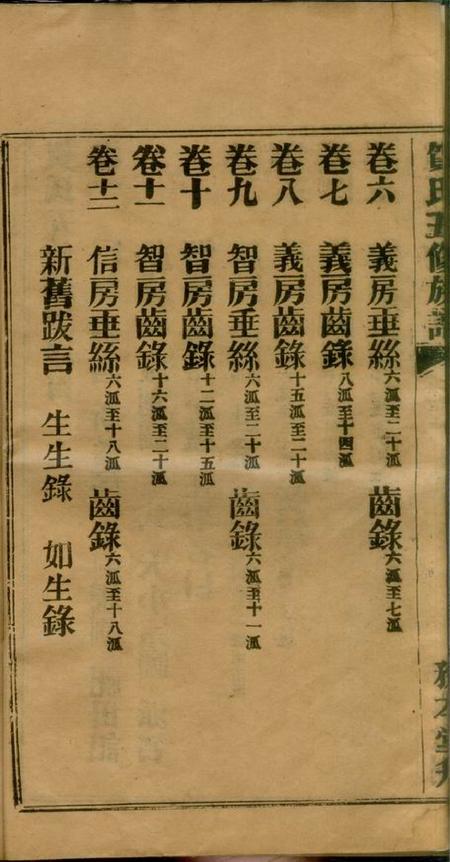 氏五修族譜
卷六 義房垂絲六派至二十派 齒錄六派至七派
卷七 義房齒錄八派至十四派
卷八 義房齒錄十五派至二十派
卷九 智房垂絲六派至二十派 齒錄六派至十一派
卷十 智房齒錄十二派至十五派
卷十一 智房齒錄十六派至二十派
卷十二 信房垂絲六派至十八派 齒錄六派至十八派
新舊跋言 生生錄 如生錄